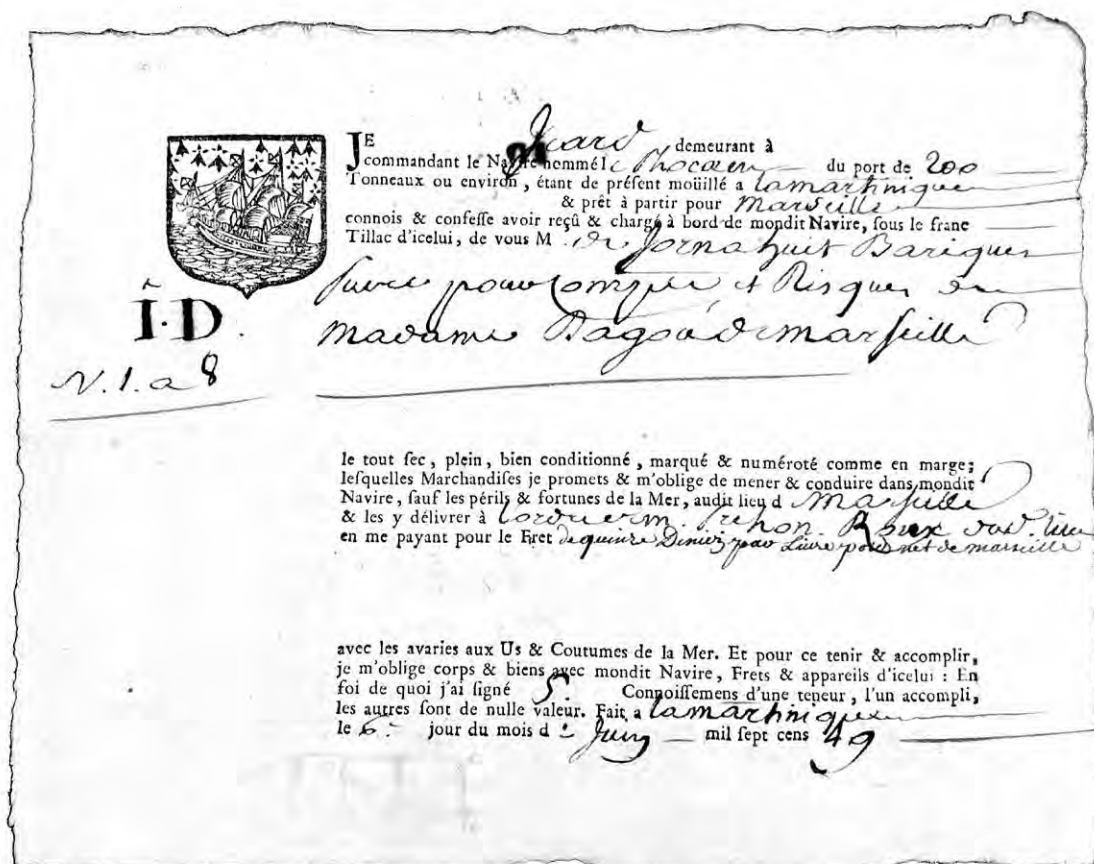 JE Icard demeurant à
commandant le Navire nommé le Phocéen du port de 200
Tonneaux ou environ, étant de préſent moüillé a lamartinique
& prêt à partir pour Marseille
connois & confeſſe avoir reçû & chargé à bord de mondit Navire, ſous le franc
Tillac d'icelui, de vous M. de Jorna huit Bariques
Sucre pour Compte et Risques de
Madame Dagou de Marseille
I·D.
N. 1. a 8
le tout ſec, plein, bien conditionné, marqué & numéroté comme en marge;
leſquelles Marchandiſes je promets & m'oblige de mener & conduire dans mondit
Navire, ſauf les périls & fortunes de la Mer, audit lieu d Marseille
& les y délivrer à Roux dud. lieu
en me payant pour le Fret de quinze Deniers par Livre poids net de marseille
avec les avaries aux Us & Coutumes de la Mer. Et pour ce tenir & accomplir,
je m'oblige corps & biens avec mondit Navire, Frets & appareils d'icelui : En
foi de quoi j'ai ſigné 5. Connoiſſemens d'une teneur, l'un accompli,
les autres ſont de nulle valeur. Fait a lamartinique
le 6. jour du mois de Juin mil ſept cens 49